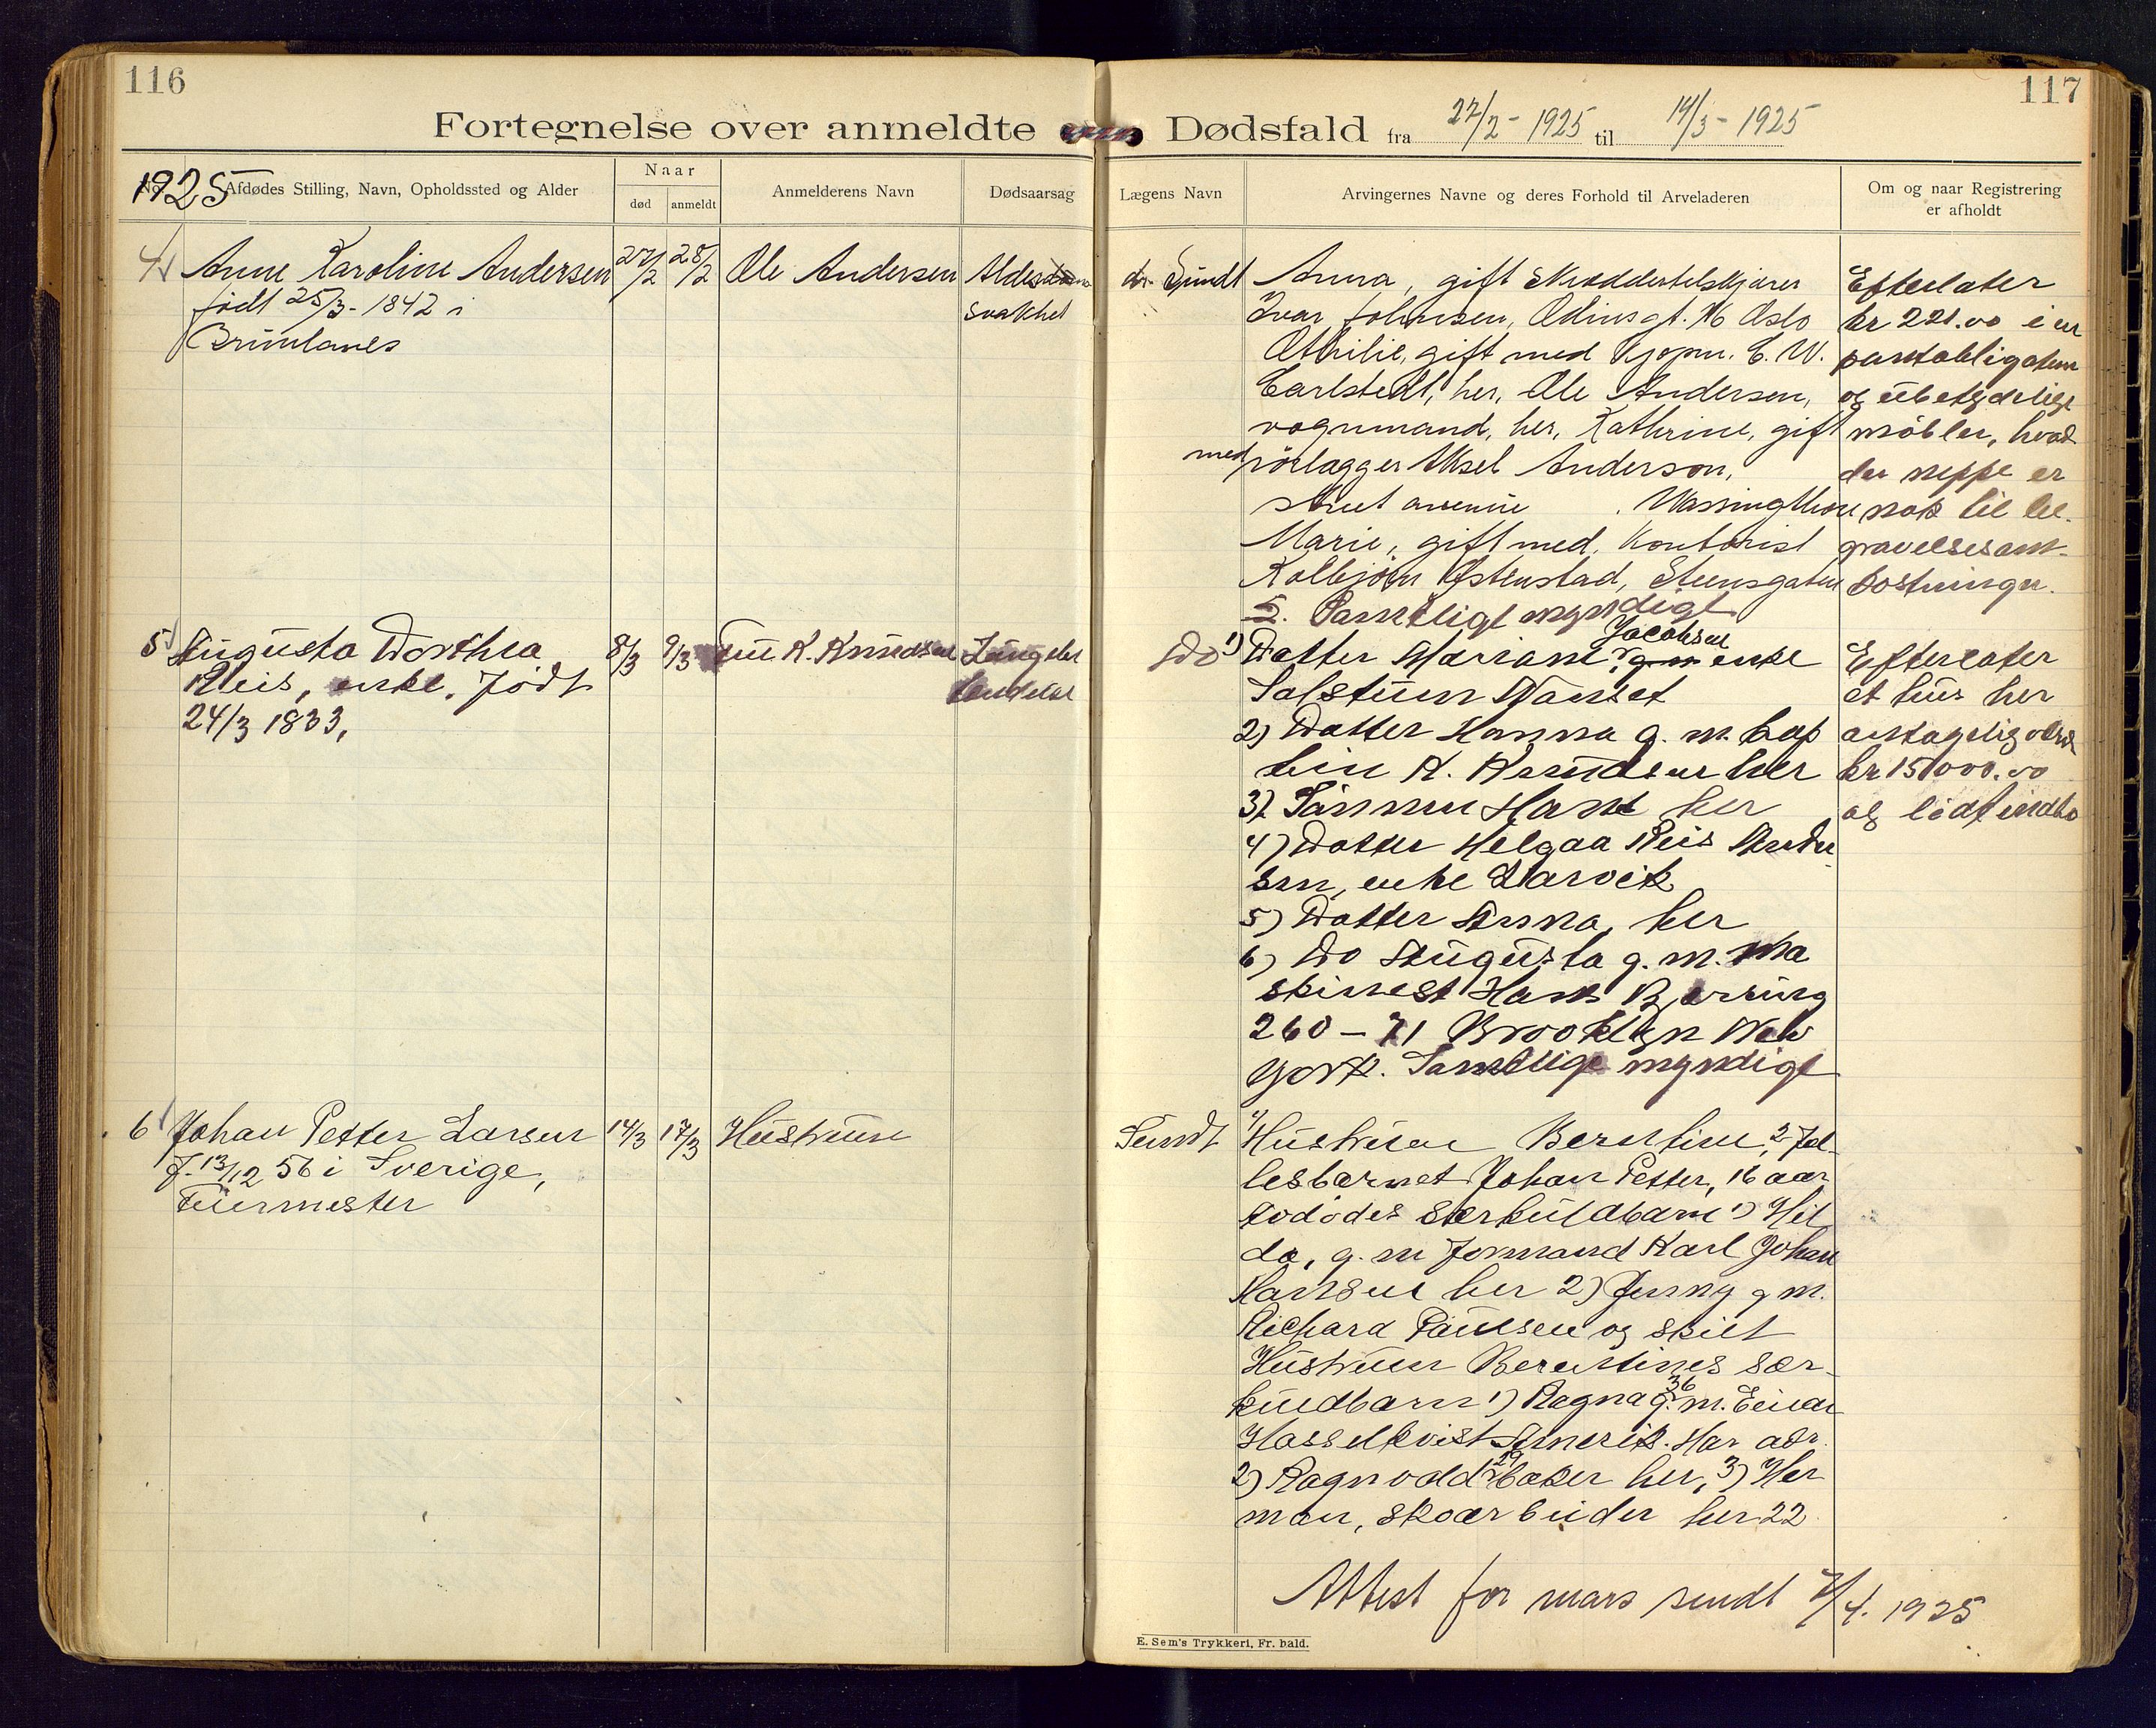 116
117
Fortegnelse over anmeldte Dødsfald fra 27/2 - 1925 til 14/3 - 1925
1925
Afdødes Stilling, Navn, Opholdssted og Alder
Naar
død
anmeldt
Anmelderens Navn
Dødsaarsag
Lægens Navn
Arvingernes Navne og deres Forhold til Arveladeren
Om og naar Registrering
er afholdt
4 Anne Karoline Andersen 27/2 28/2 Ole Andersen Aldes
født 25/3 - 1842 i svakhet
Brunlanes
dr. Sundt
Anna, gift
Ivar Johnsen, Odinsgt. 16 Oslo
Othilie, gift med Kjøpm. C. W.
Carlstedt, her, Ole Andersen,
vognmand, her, Kathrine, gift
med rørlægger Aksel Anderson,
Marie, gift med kontorist
Kolbjørn Østenstad, Steensgaten
5. Samtlige myndige
Efterlater
kr 221.00 i en
pantobligation
og ubetydelige
møbler, hvad
der neppe er
nok til be-
gravelsesom-
kostninger.
5 Augusta Dorthea 8/3 9/3 K. Knudsen Lunge
Reis, enke. Født
24/3 1833,
Do
1) Datter Mariane Jacobsen enke
Nanset
2) Datter Hanna g. m. kap
tein K. Knudsen her
3) Sønnen Hans her
4) Datter Helgaa Reis Ander
sen, enke Larvik
5) Datter Anna, her
6) Do Augusta g. m. Ma
skinist Hans Bjerring
260 - 71 Brooklyn New
York. Samtlige myndige
Efterlater
et hus her
antagelig værd
kr 15000.00
og lidt indbo
6 Johan Petter Larsen 14/3 17/3 Hustruen
f. 13/12 56 i Sverige,
Murmester
Sundt
1) Hustruen Berntine, 2 Fæl-
lesbarnet Johan Petter, 16 aar
avdødes særkuldbarn 1) Hil
da, g. m Formand Karl Johan
Hansen her 2) Jenny g m.
Richard Paulsen og skilt
Hustruen Berntines sær-
kuldbarn 1) Ragna 36 g. m. Einar
Hasselkvist Amerik. Har adr.
2) Ragnvald 29 baker her, 3) Her
man, skoarbeider her 22
Attest for mars sendt 7/4. 1925
E. Sem's Trykkeri, Fr. hald.